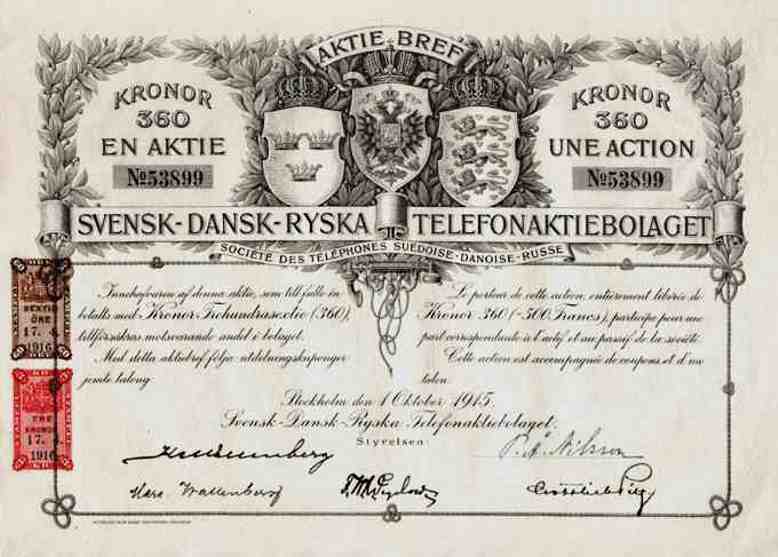 AKTIE BREF
KRONOR
360
EN AKTIE
No 53899
KRONOR
360
UNE ACTION
No 53899
SVENSK-DANSK-RYSKA TELEFONAKTIEBOLAGET
SOCIÉTÉ DES TÉLÉPHONES SUÉDOISE-DANOISE-RUSSE
Innehafvaren af denna aktie, som till fullo in-
betalts med Kronor Trehundrasextio (360),
tillförsäkras motsvarande andel i bolaget.
Med detta aktiebref följa utdelningskuponger
jemte talong.
Le porteur de cette action, entièrement libérée de
Kronor 360 (=500 Francs), participe pour une
part correspondante à l'actif et au passif de la société.
Cette action est accompagnée de coupons et d'un
talon.
Stockholm den 1 Oktober 1915.
Svensk-Dansk-Ryska Telefonaktiebolaget.
Styrelsen:
P. A. Nilsson
Marc Wallenberg
SEXTIO
ÖRE
17.
1916
ENE
KRONOR
17.
1916